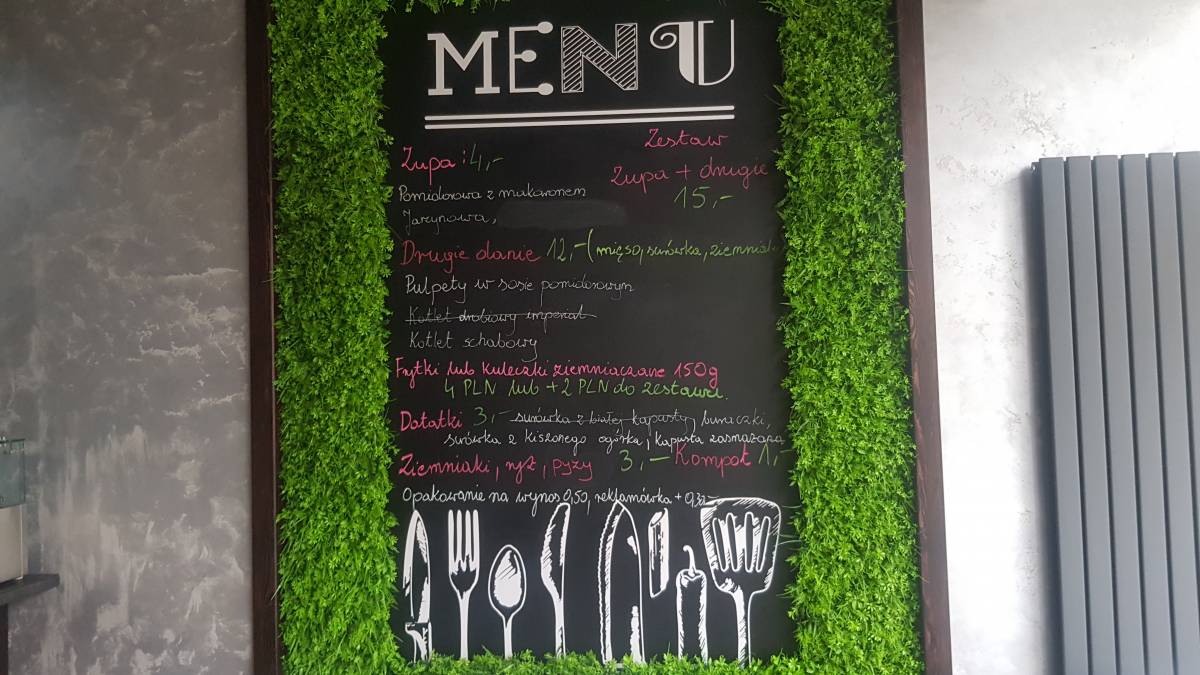 MENU
Zestaw
Zupa : 4,-
Zupa + drugie
15,-
Pomidorowa z makaronem
Jarzynowa,
Drugie danie 12,- (mięso, surówka, ziemniak
Pulpety w sosie pomidorowym
Kotlet drobiowy imperial
Kotlet schabowy
Frytki lub kuleczki ziemniaczane 150g
4 PLN lub + 2 PLN do zestawu.
Dodatki 3,- surówka z białej kapusty, buraczki,
surówka z kiszonego ogórka, kapusta zasmażana
Ziemniaki, ryż, pyzy 3,- Kompot 1,-
Opakowanie na wynos 0,50, reklamówka +